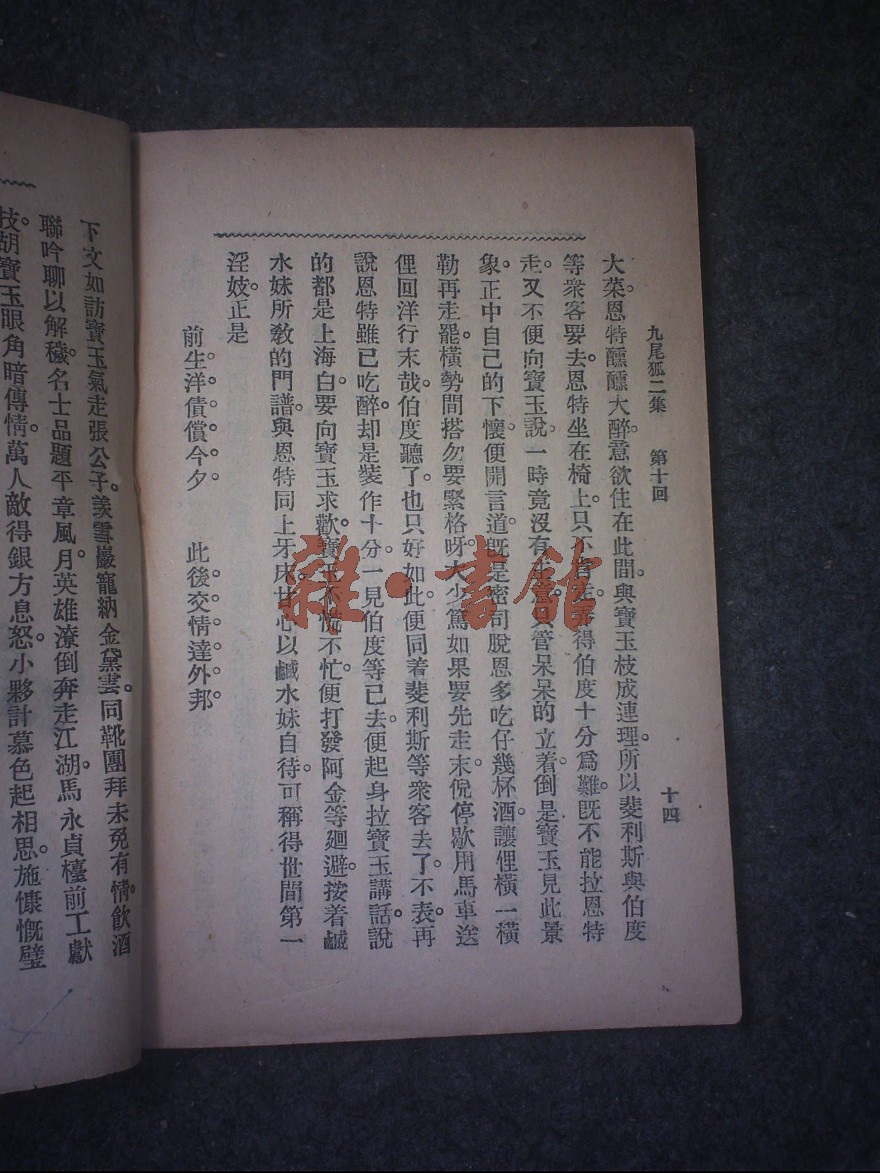 九尾狐二集　第十回　十四
大菜恩特醺醺大醉意欲住在此間。與寶玉枝成連理。所以斐利斯與伯度
等衆客要去恩特坐在椅上。只不肯走弄得伯度十分爲難旣不能拉恩特
走。又不便向寶玉說。一時竟沒有主意只管呆呆的立着。倒是寶玉見此景
象。正中自己的下懷。便開言道。旣是密司脫恩多吃仔幾杯酒。讓俚橫一橫
勒再走罷。橫勢間搭勿要緊格呀。大少篤如果要先走。末倪停歇用馬車送
俚回洋行末哉。伯度聽了。也只好如此。便同着斐利斯等衆客去了。不表。再
說恩特雖已吃醉。却是裝作十分。一見伯度等已去。便起身拉寶玉講話。說
的都是上海白。要向寶玉求歡。寶玉不慌不忙。便打發阿金等廻避。按着鹹
水妹所敎的門譜。與恩特同上牙床。甘心以鹹水妹自待。可稱得世間第一
淫妓。正是
前生洋債償今夕　此後交情達外邦
下文如訪寶玉氣走張公子。羨雪巖寵納金黛雲。同靴團拜未免有情。飮酒
聯吟聊以解穢。名士品題平章風月。英雄潦倒奔走江湖。馬永貞檯前工獻
技。胡寶玉眼角暗傳情。萬人敵得銀方息怒。小夥計慕色起相思。施慷慨璧
雜·書館